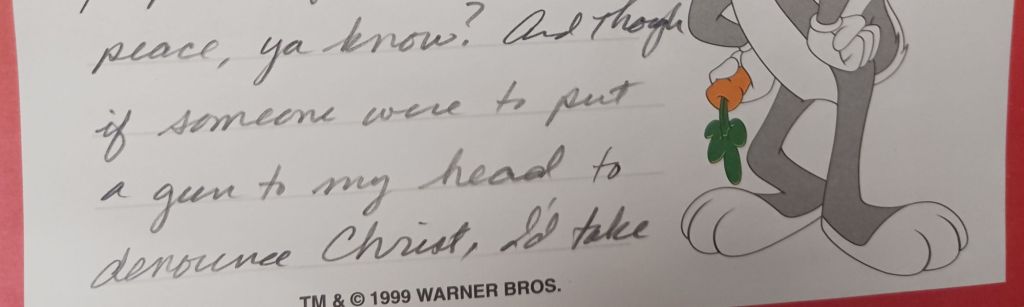 peace, ya know? And though
if someone were to put
a gun to my head to
denounce Christ, I'd take
TM & © 1999 WARNER BROS.